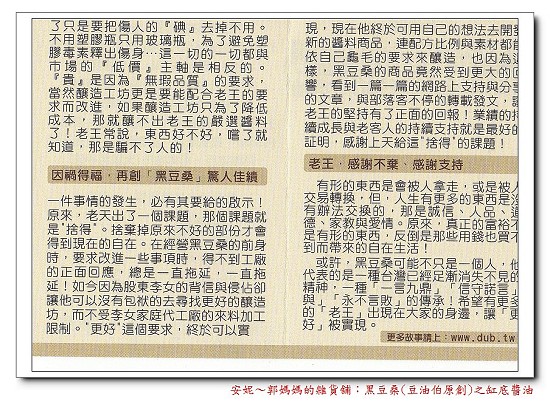 了只是要把傷人的『碘』去掉不用。
不用塑膠瓶只用玻璃瓶，為了避免塑
膠毒素釋出傷身…這一切的一切都與
市場的『低價』主軸是相反的。
『貴』是因為『無瑕品質』的要求，
當然釀造工坊更是要能配合老王的要
求而改進，如果釀造工坊只為了降低
成本，那就釀不出老王的嚴選醬料
了！老王常說，東西好不好，嚐了就
知道，那是騙不了人的！
因禍得福，再創「黑豆桑」驚人佳績
一件事情的發生，必有其要給的啟示！
原來，老天出了一個課題，那個課題就
是"捨得"。捨棄掉原來不好的部份才會
得到現在的自在。在經營黑豆桑的前身
時，要求改進一些事項時，得不到工廠
的正面回應，總是一直拖延，一直拖
延！如今因為股東李女的背信與侵佔卻
讓他可以沒有包袱的去尋找更好的釀造
坊，而不受李女家庭代工廠的來料加工
限制。"更好"這個要求，終於可以實
現，現在他終可用自己的想法去開
新的醬料商品，連配方比例與素材都
依自己龜毛的要求來釀造，也因為
樣，黑豆桑的商品竟然受到更大的
響，看到一篇一篇的網路上支持與分
的文章，與部落客不停的轉載發文，
老王的堅持有了正面的回報！業績的
續成長與老客人的持續支持就是最好
證明，感謝上天給這"捨得"的課題！
老王，感謝不棄、感謝支持
有形的東西是會被人拿走，或是被
交易轉換，但，人生有更多的東西是
有辦法交換的，那是誠信、人品、
德、家教與愛情。原來，真正的富裕
是有形的東西，反倒是那些用錢也買
到而帶來的自在生活！
或許，黑豆桑可能不只是一個人，
代表的是一種台灣已經足漸消失不見
精神，一種「一言九鼎」「信守諾言」
與」「永不言敗」的傳承！希望有更
的「老王」出現在大家的身邊，讓「
好」被實現。
更多故事請上：www.dub.tw
安妮～郭媽媽的雜貨舖：黑豆桑(豆油伯原創)之缸底醬油